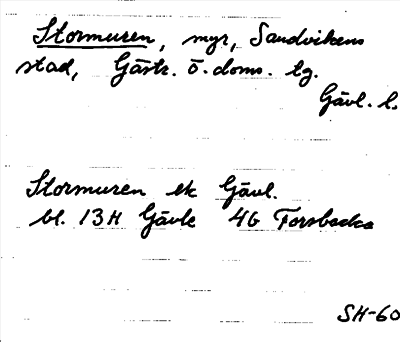 Stormuren, myr, Sandvikens
stad, Gästr. ö. doms. lg.
Gävl. l.
Stormuren ek Gävl.
bl. 13H Gävle 4G Forsbacka
SH-60